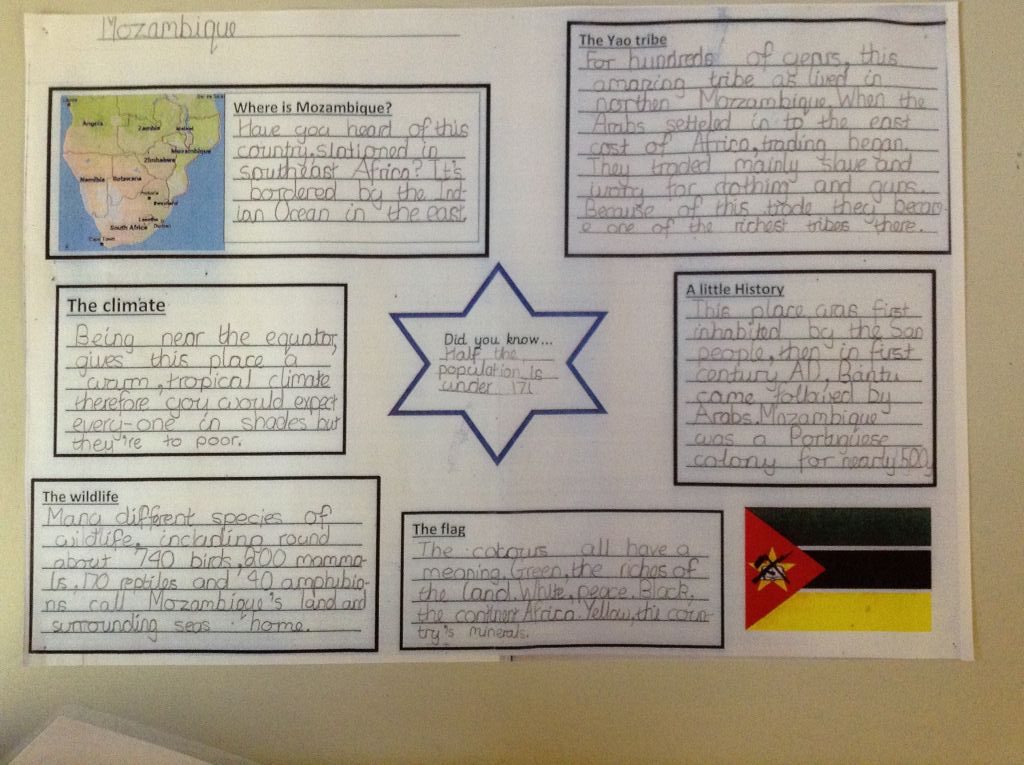 Mozambique
Where is Mozambique?
Have you heard of this
country, stationed in
southeast Africa? It's
bordered by the Ind-
ian Ocean in the east.
Angola
Zambia
Malawi
Mozambique
Zimbabwe
Namibia
Botswana
Pretoria
Swaziland
Lesotho
Durban
South Africa
Cape Town
The Yao tribe
For hundreds of years, this
amazing tribe as lived in
northen Mozzambique. When the
Arabs setteled in to the east
cost of Africa, trading began.
They traded mainly slave and
ivory for clothing and guns.
Because of this trade they becam-
e one of the richest tribes there.
The climate
Being near the equator,
gives this place a
warm, tropical climate
therefore you would expect
every-one in shades but
they're to poor.
Did you know...
Half the
population is
under 17!
A little History
This place was first
inhabited by the San
people, then in first
century AD, Bantu
came follwed by
Arabs. Mozambique
was a Portuguese
colony for nearly 500y
The wildlife
Many different species of
wildlife, including round
about 740 birds, 200 mamma-
ls, 170 reptiles and 40 amphibia-
ns call Mozambique's land and
surrounding seas home.
The flag
The colours all have a
meaning. Green, the riches of
the land. White, peace. Black,
the continent Africa. Yellow, the coun-
try's minerals.